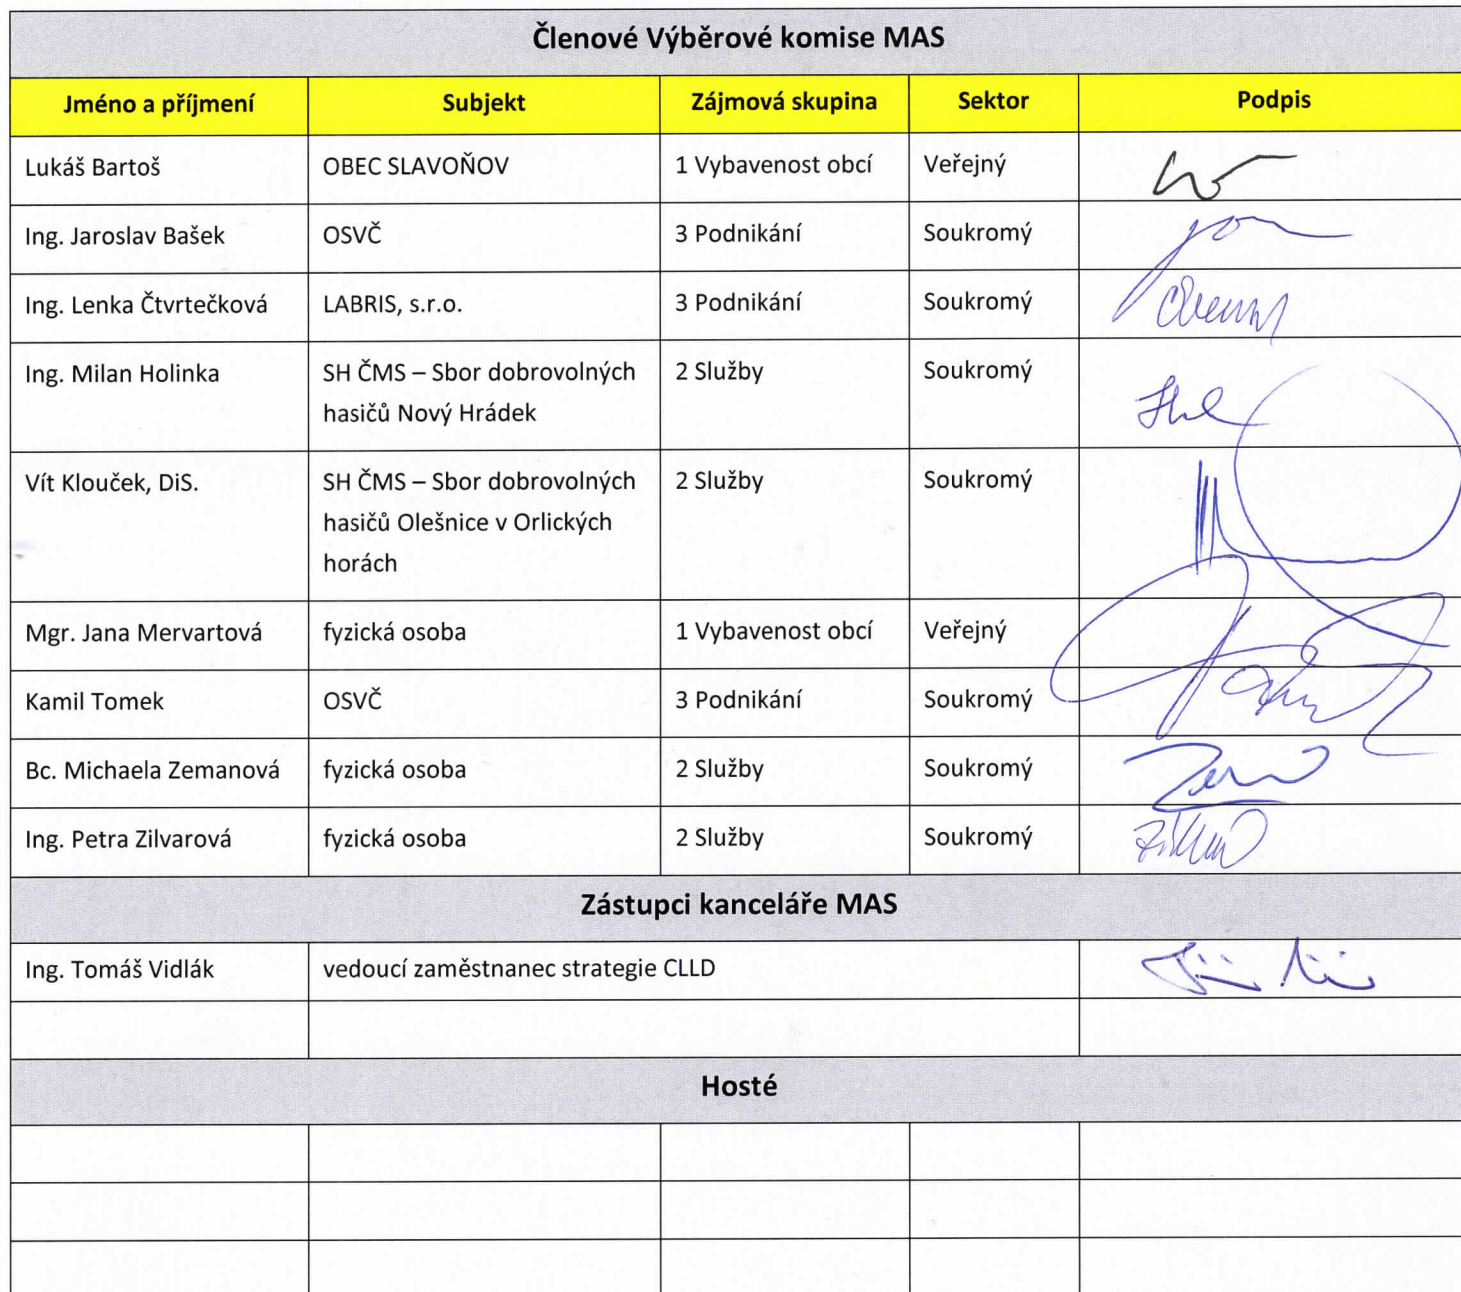 Členové Výběrové komise MAS
Jméno a příjmení Subjekt Zájmová skupina Sektor Podpis
Lukáš Bartoš OBEC SLAVOŇOV 1 Vybavenost obcí Veřejný
Ing. Jaroslav Bašek OSVČ 3 Podnikání Soukromý
Ing. Lenka Čtvrtečková LABRIS, s.r.o. 3 Podnikání Soukromý
Ing. Milan Holinka SH ČMS – Sbor dobrovolných 2 Služby Soukromý
hasičů Nový Hrádek
Vít Klouček, DiS. SH ČMS – Sbor dobrovolných 2 Služby Soukromý
hasičů Olešnice v Orlických
horách
Mgr. Jana Mervartová fyzická osoba 1 Vybavenost obcí Veřejný
Kamil Tomek OSVČ 3 Podnikání Soukromý
Bc. Michaela Zemanová fyzická osoba 2 Služby Soukromý
Ing. Petra Zilvarová fyzická osoba 2 Služby Soukromý
Zástupci kanceláře MAS
Ing. Tomáš Vidlák vedoucí zaměstnanec strategie CLLD
Hosté